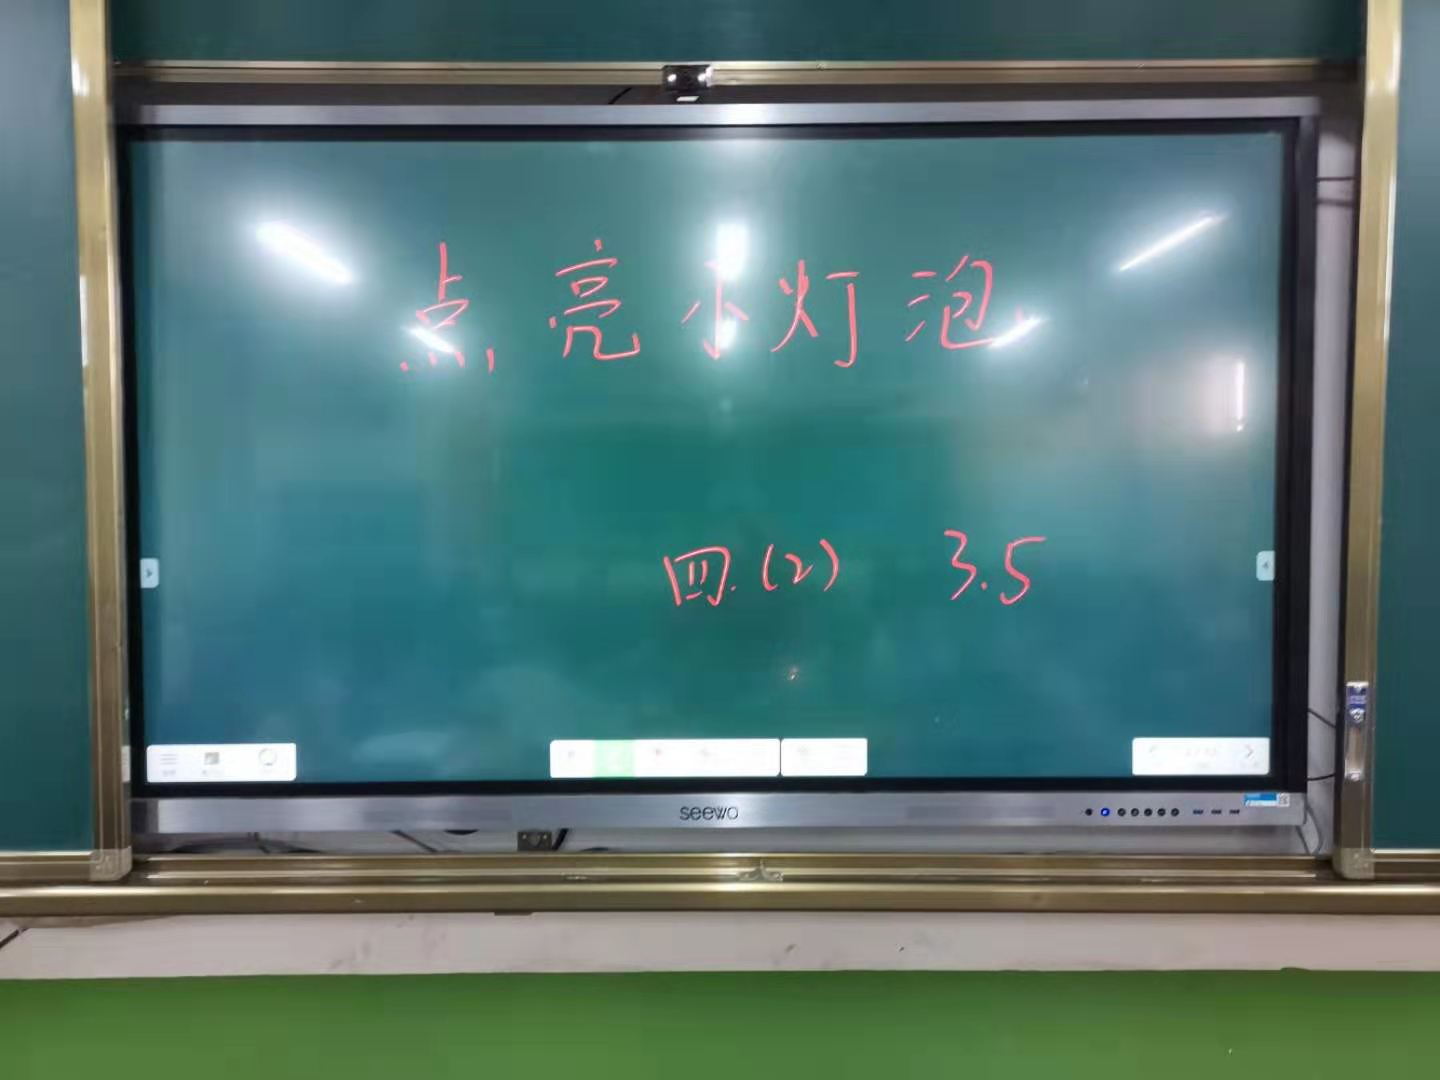 点亮小灯泡
四.(2) 3.5
seewo